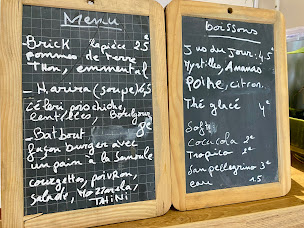 Menu
- Brick la pièce 2.5 €
pommes de terre
Thon, emmental
- Harira (soupe) 4.5
céleri, poischiche,
lentilles,
- Batbout 8€
façon burger avec
un pain à la semoule
courgettes, poivron,
salade, mozzarela,
TAHINI
boissons
Jus du jour : 4.5 €
Myrtilles, Ananas
Poire, citron.
Thé glacé 4€
Soft
Coca cola 2€
Tropico 2€
San pellegrino 3€
eau 1.5